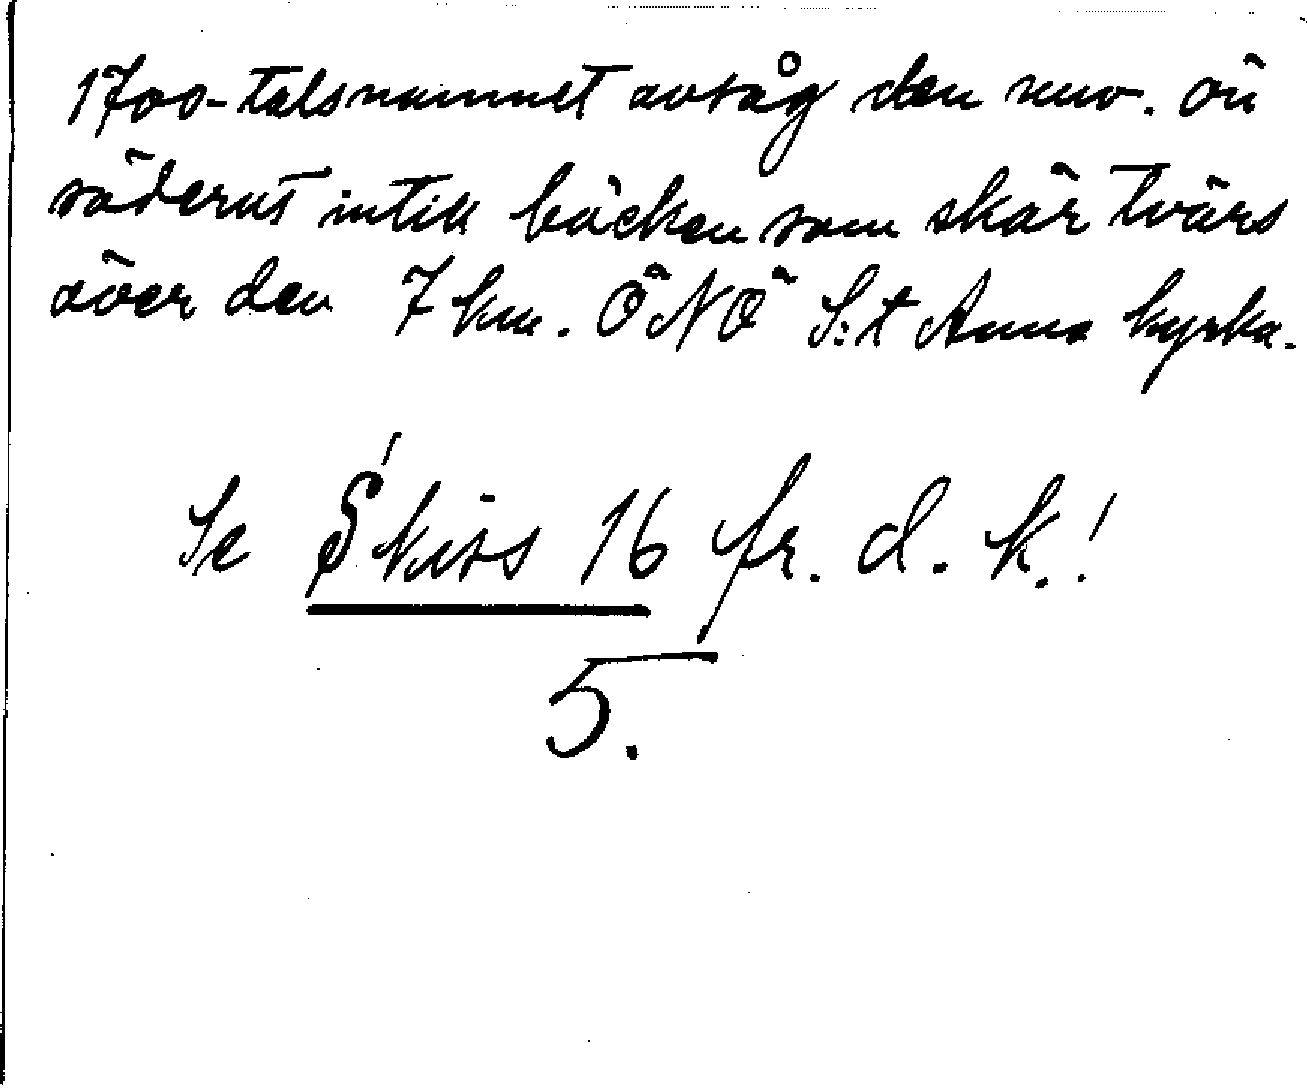 1700-talsnamnet avsåg den nuv. ön
söderut intill bäcken som skär tvärs
över den 7 km. ÖNÖ S:t Anna kyrka.
Se Skiss 16 fr. d. k.!
5.